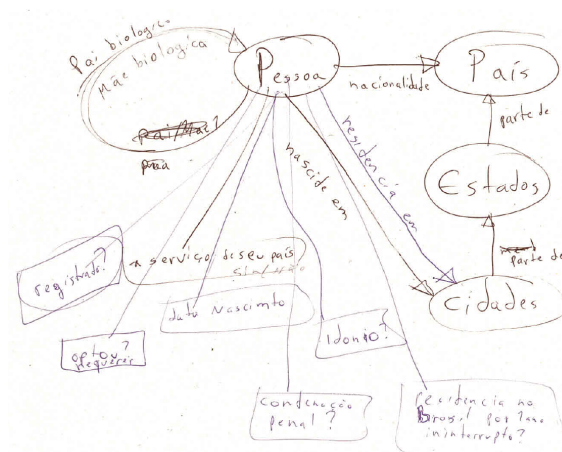 Pai biologico
Mãe biologica
Pessoa
País
nacionalidade
parte de
Estados
parte de
cidades
nascide em
residencia em
registrado?
a serviço de seu país
sim/não
data Nascimto
optou?
requerer
Idonio?
condenação
penal?
residencia no
Brasil por 1 ano
ininterrupto?